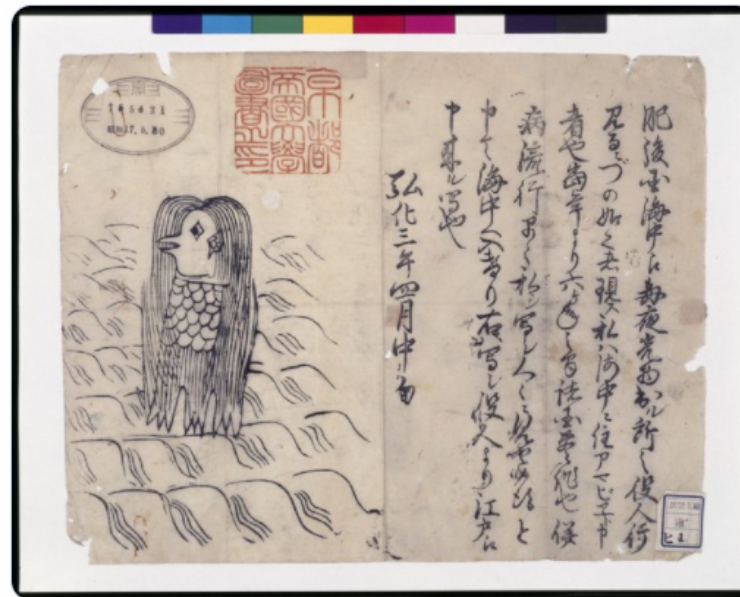 肥後国海中江毎夜光物出ル所之役人行
見るニづの如之者現ス私ハ海中ニ住アマビヱト申
者也当年より六ヶ年之間諸国豊作也併
病流行早々私ヲ写シ人々ニ見セ候得と
申て海中へ入けり右ハ写シ役人より江戸江
申来ル写也
弘化三年四月中旬
京都
帝國大學
圖書之印